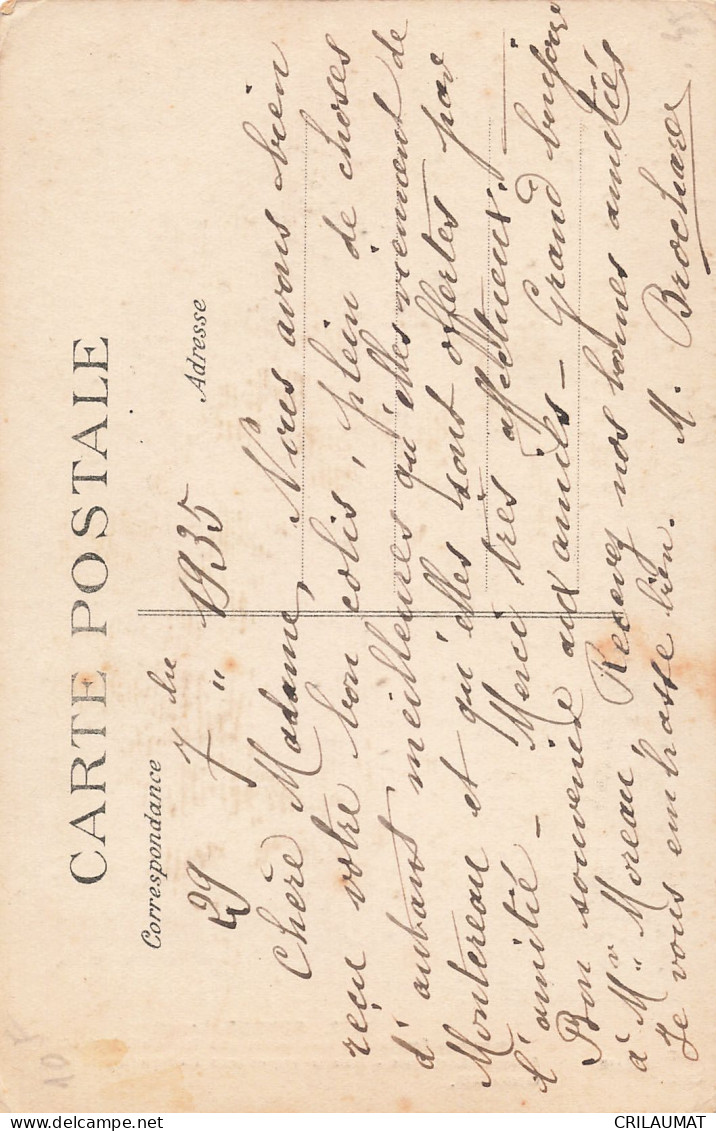 CARTE POSTALE
Correspondance
Adresse
29 7bre " 1935
Chère Madame, Nous avons bien
reçu votre bon colis, plein de choses
d'autant meilleures qu'elles viennent de
Montereau et qu'elles sont offertes par
l'amitié - Merci très affectueux.
Bon souvenir aux amies - Grand bonjour
à Mr Moreau Recevez nos bonnes amitiés
Je vous embrasse bien. M. Brochard
10
45
CRILAUMAT